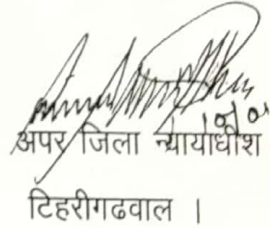 अपर जिला न्यायाधीश
टिहरीगढवाल ।